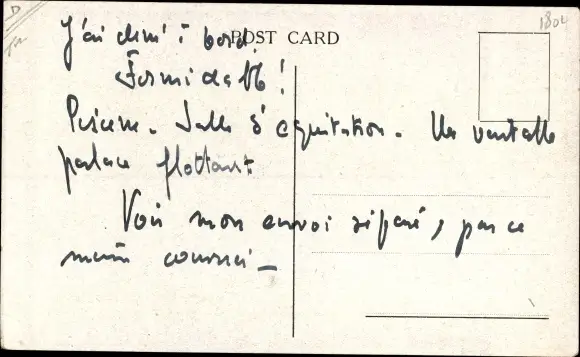 1804
D
POST CARD
J'ai dîné à bord.
Formidable !
Piscine. Salle d'équitation. Un véritable
palace flottant
Voir mon envoi séparé, par ce
même courrier_